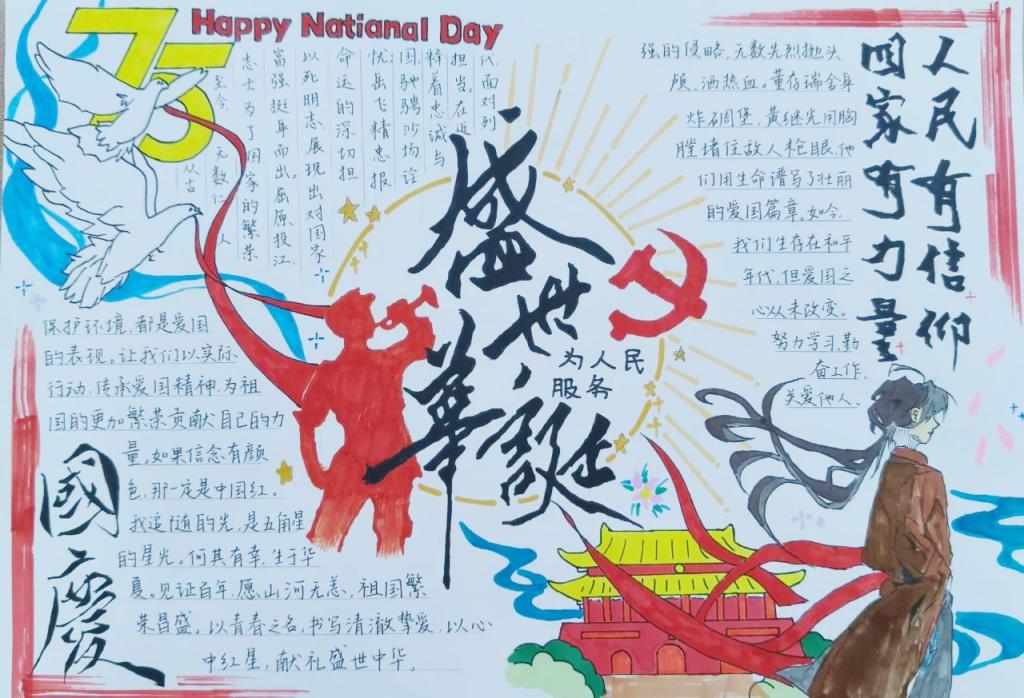 75
Happy Natianal Day
从古
至今,无数仁人
志士为了国家的繁荣
富强挺身而出屈原投江,
以死明志,展现出对国家
命运的深切担
忧岳飞精忠报
国,驰骋沙场,诠
释着忠诚与
担当。在近
代,面对列
强的侵略,无数先烈抛头
颅,洒热血。董存瑞舍身
炸碉堡,黄继光用胸
膛堵住敌人枪眼,他
们用生命谱写了壮丽
的爱国篇章。如今,
我们生存在和平
年代,但爱国之
心从未改变。
努力学习、勤
奋工作、
关爱他人、
保护环境,都是爱国
的表现。让我们以实际
行动,传承爱国精神,为祖
国的更加繁荣贡献自己的力
量。如果信念有颜
色,那一定是中国红。
我追随的光,是五角星
的星光。何其有幸,生于华
夏。见证百年,愿山河无恙,祖国繁
荣昌盛。以青春之名,书写清澈挚爱,以心
中红星,献礼盛世中华。
盛世華誕
为人民
服务
人民有信仰
国家有力量
國慶